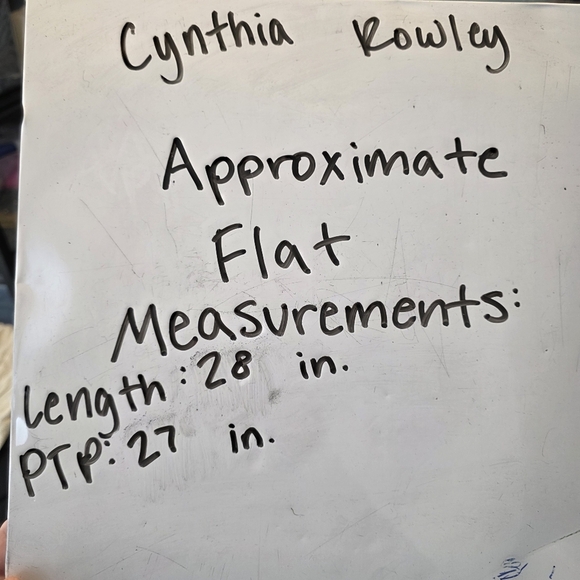 Cynthia Rowley
Approximate
Flat
Measurements:
Length: 28 in.
PTP: 27 in.